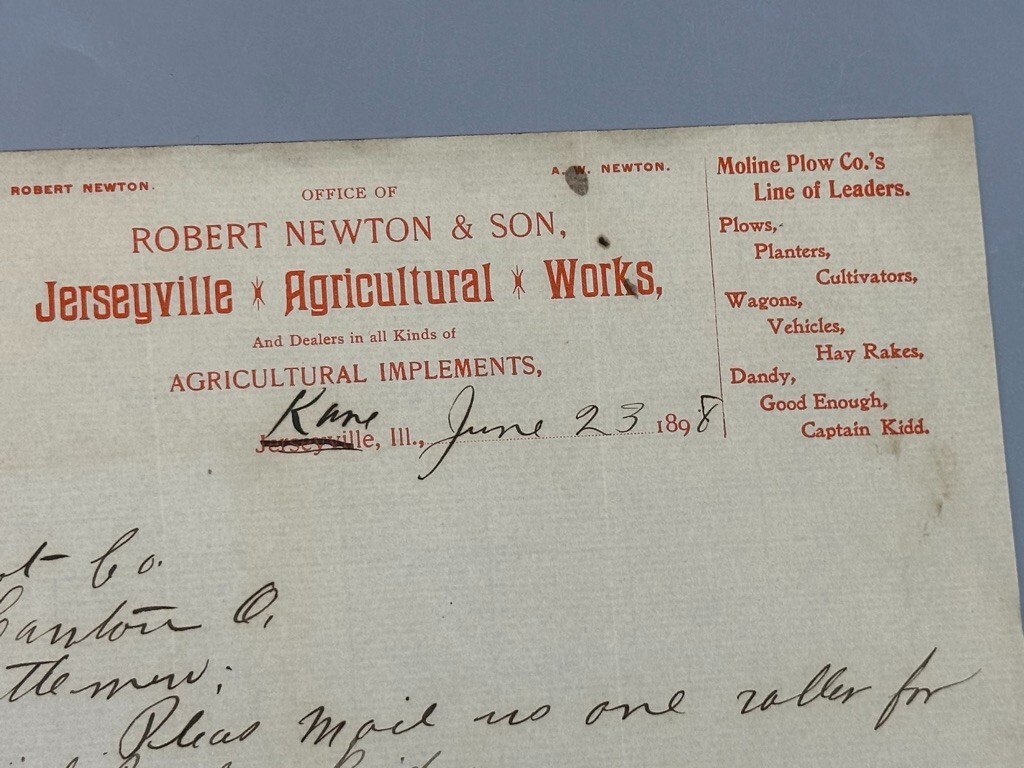 ROBERT NEWTON.
A. W. NEWTON.
OFFICE OF
ROBERT NEWTON & SON,
Jerseyville Agricultural Works,
And Dealers in all Kinds of
AGRICULTURAL IMPLEMENTS,
Kane
Jerseyville, Ill., June 23 1898
Moline Plow Co.'s
Line of Leaders.
Plows,
Planters,
Cultivators,
Wagons,
Vehicles,
Hay Rakes,
Dandy,
Good Enough,
Captain Kidd.
Co.
Canton O.
ttlemen;
Pleas Mail us one roller for